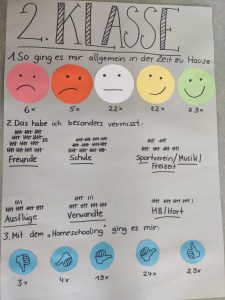 2. KLASSE
1. So ging es mir allgemein in der Zeit zu Hause:
6x 5x 22x 22x 23x
2. Das habe ich besonders vermisst:
Freunde Schule Sportverein/Musik/
Freizeit
Ausflüge Verwandte HB/Hort
3. Mit dem „Homeschooling" ging es mir:
3x 4x 19x 24x 29x